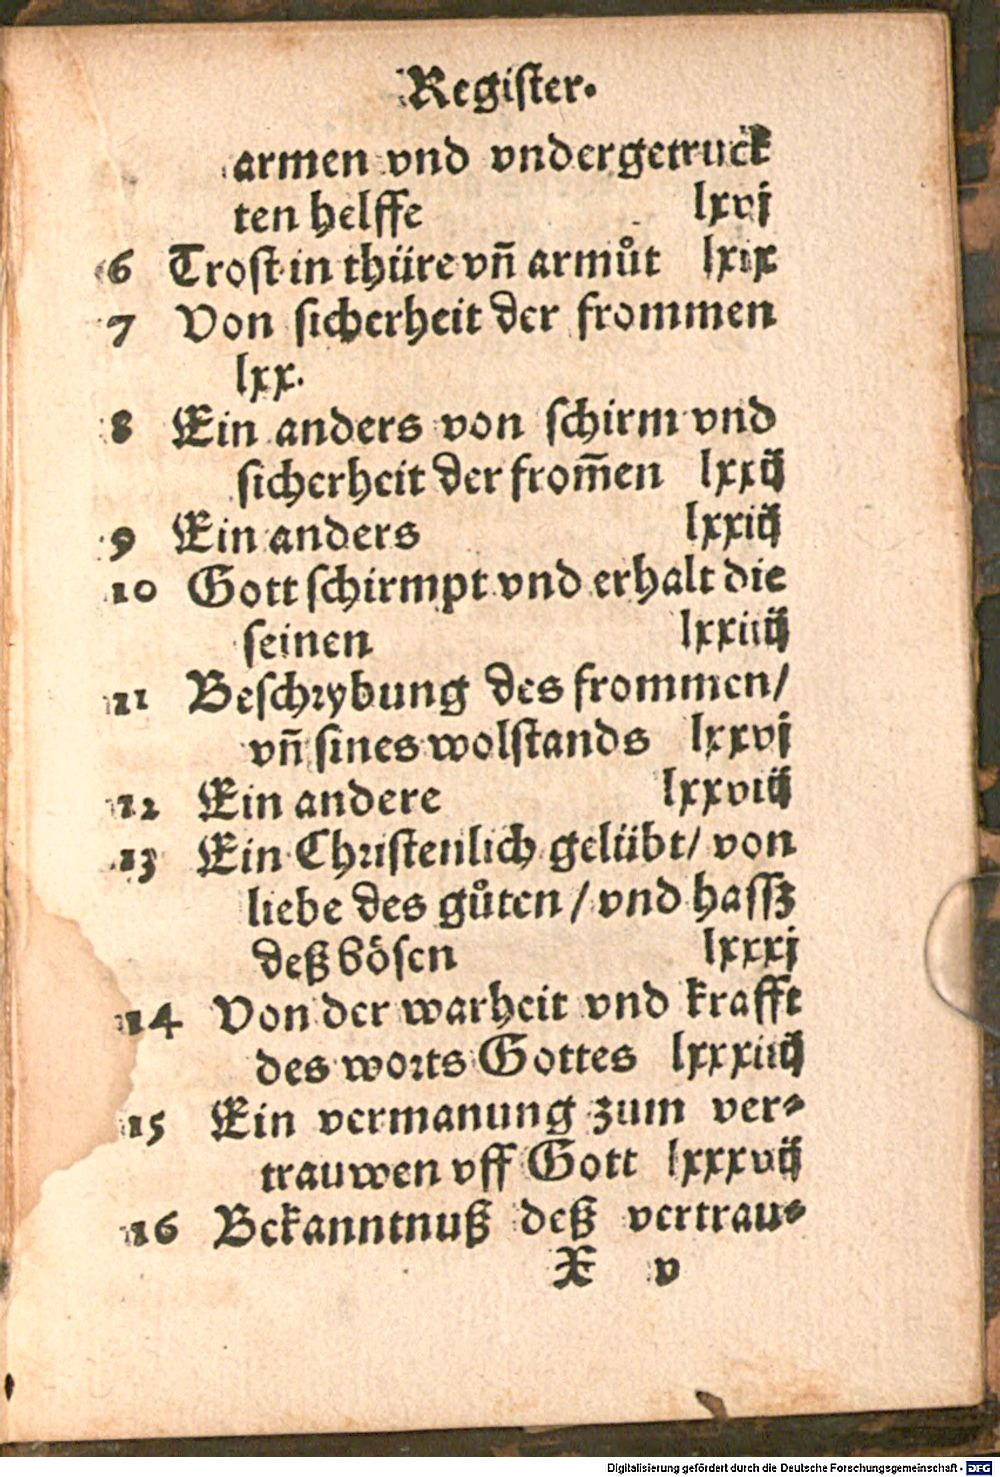 Register.
armen vnd vndergetruck
ten helffe lxvj
6 Trost in thüre vñ armůt lxix
7 Von sicherheit der frommen
lxx.
8 Ein anders von schirm vnd
sicherheit der from̄en lxxij
9 Ein anders lxxiij
10 Gott schirmpt vnd erhalt die
seinen lxxiiij
11 Beschrybung des frommen/
vñ sines wolstands lxxvj
12 Ein andere lxxviij
13 Ein Christenlich gelübt/ von
liebe des gůten / vnd hassz
deß bösen lxxxj
14 Von der warheit vnd krafft
des worts Gottes lxxxiiij
15 Ein vermanung zum ver-
trauwen vff Gott lxxxvij
16 Bekanntnuß deß vertrau-
X v
Digitalisierung gefördert durch die Deutsche Forschungsgemeinschaft - DFG